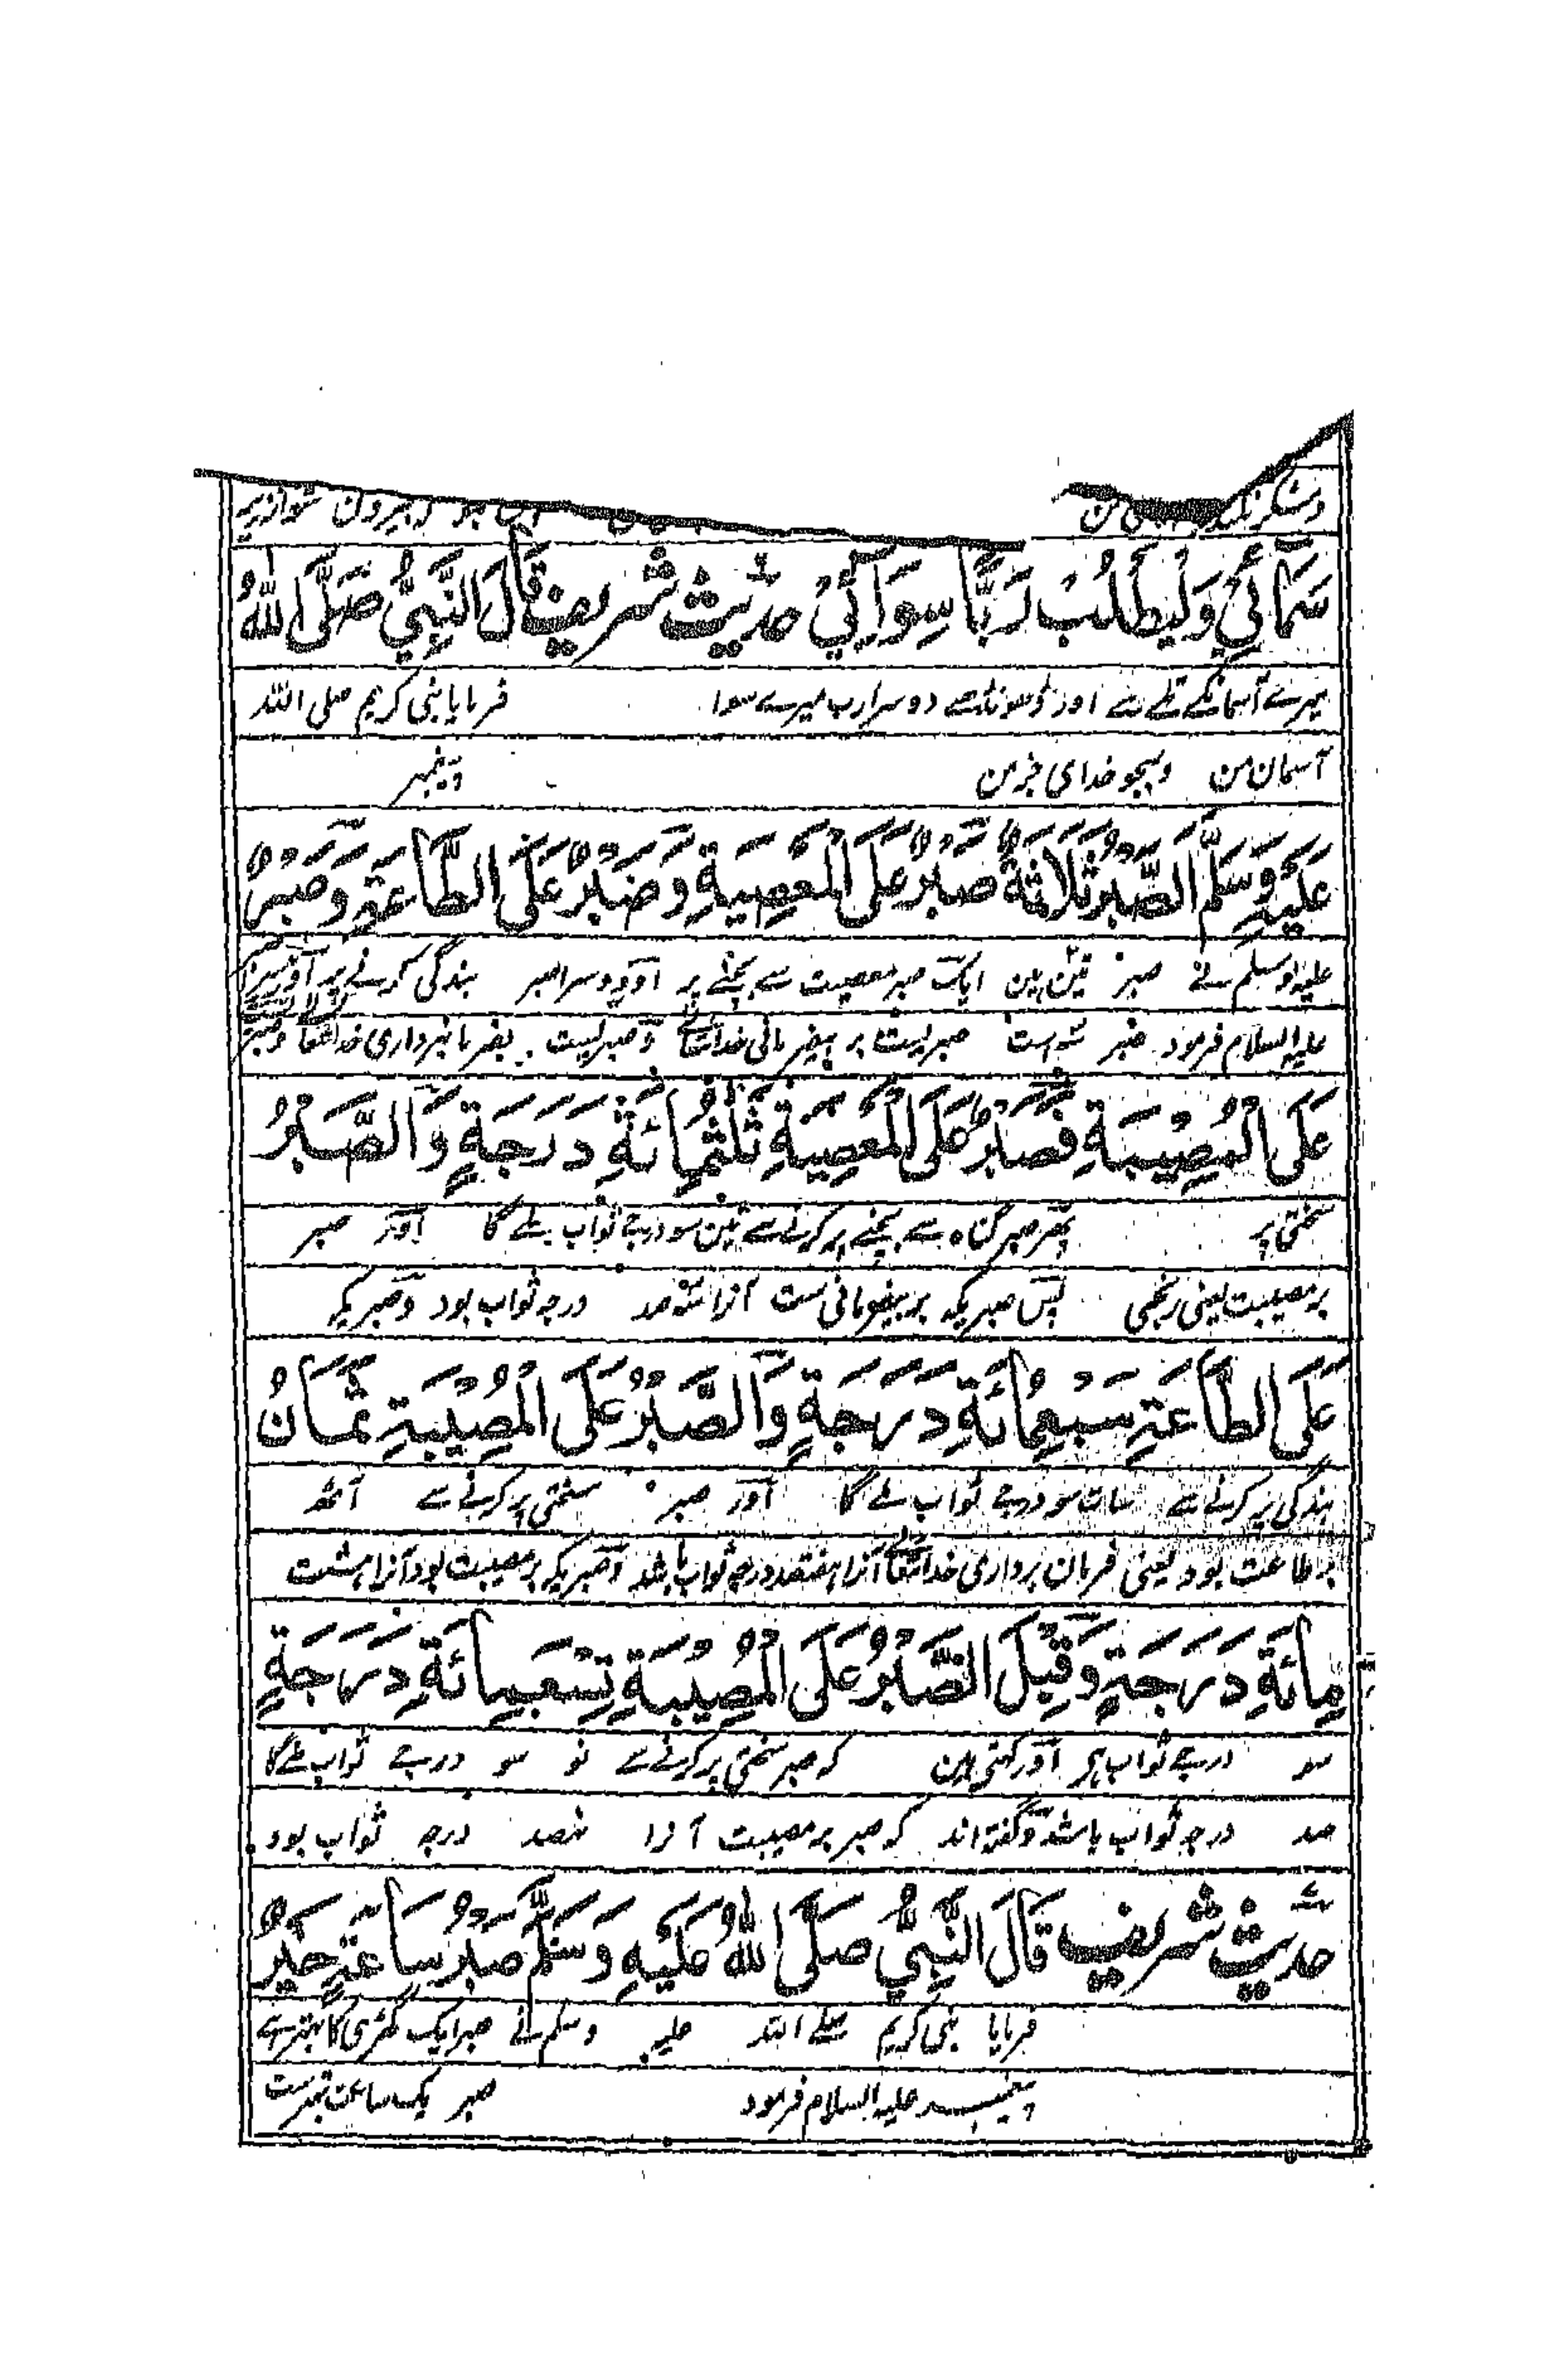 بیرون شو از زیر
سَمَآئِيْ وَلْيَطْلُبْ رَبًّا سِوَآئِيْ حدیث شریف قَالَ النَّبِيُّ صَلَّى اللهُ
میرے آسمانکے تلے سے اور ڈھونڈھے دوسرا رب میرے سوا فرمایا نبی کریم صلی اللہ
آسمان من وبجو خدای جز من پیغمبر
عَلَيْهِ وَسَلَّمَ الصَّبْرُ ثَلَاثَةٌ صَبْرٌ عَلَى الْمَعْصِيَةِ وَصَبْرٌ عَلَى الطَّاعَةِ وَصَبْرٌ
علیہ وسلم نے صبر تین ہین ایک صبر معصیت سے بچنے پر اور دوسرا صبر بندگی کرنے پر اور
علیہ السلام فرمود صبر سہ است صبریست بر بیفرمانی خدایتعالی وصبریست بفرمانبرداری خدایتعالی وصبر
عَلَى الْمُصِيْبَةِ فَصَبْرٌ عَلَى الْمَعْصِيَةِ ثَلٰثُمِائَةِ دَرَجَةٍ وَالصَّبْرُ
سختی پر پھر صبر گناہ سے بچنے پر کرنے سے تین سو درجے ثواب ملے گا اور صبر
بر مصیبت یعنی رنجی پس صبریکہ بر بیفرمانی ست آنرا سہ صد درجہ ثواب بود وصبریکہ
عَلَى الطَّاعَةِ سَبْعُمِائَةِ دَرَجَةٍ وَالصَّبْرُ عَلَى الْمُصِيْبَةِ ثَمَانُ
بندگی پر کرنے سے سات سو درجے ثواب ملے گا اور صبر سختی پر کرنے سے آٹھ
بر طاعت بود یعنی فرمان برداری خدایتعالی آنرا ہفتصد درجہ ثواب باشد وصبریکہ بر مصیبت بود آنرا ہشت
مِائَةِ دَرَجَةٍ وَقِيْلَ الصَّبْرُ عَلَى الْمُصِيْبَةِ تِسْعُمِائَةِ دَرَجَةٍ
سو درجے ثواب ہی اور کہتی ہین کہ صبر سختی پر کرنے سے نو سو درجے ثواب ملے گا
صد درجہ ثواب باشد وگفتہ اند کہ صبر بر مصیبت آنرا نہصد درجہ ثواب بود
حدیث شریف قَالَ النَّبِيُّ صَلَّى اللهُ عَلَيْهِ وَسَلَّمَ صَبْرُ سَاعَةٍ خَيْرٌ
فرمایا نبی کریم صلے اللہ علیہ وسلم نے صبر ایک گھڑی کا بہتر ہے
پیغمبر علیہ السلام فرمود صبر یک ساعت بہترست